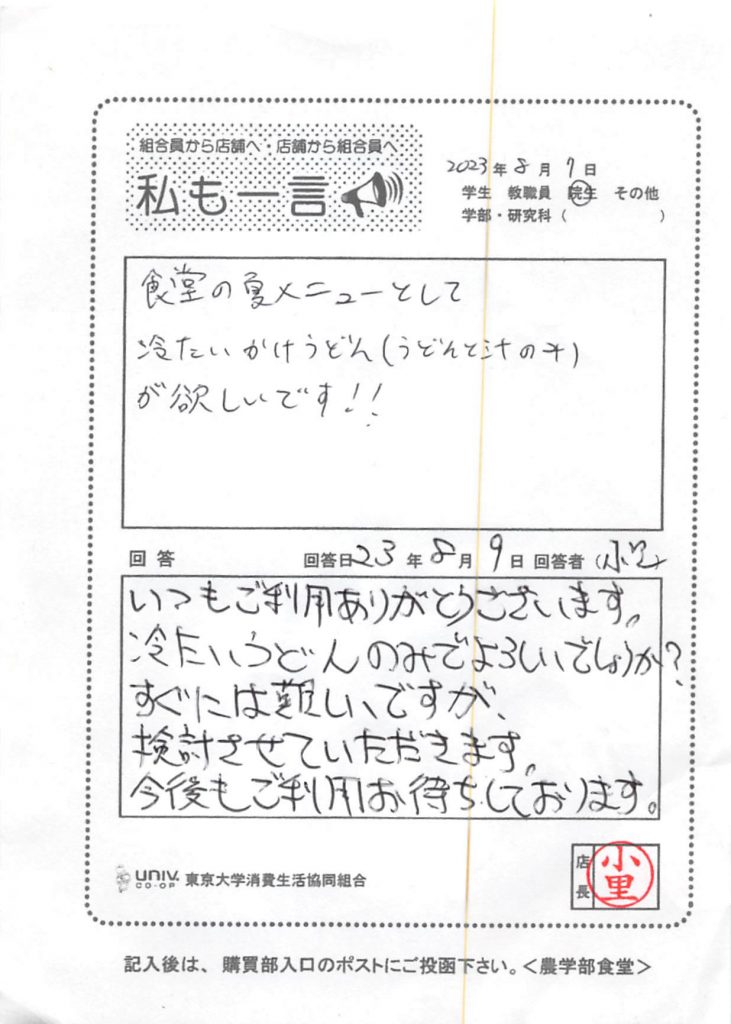 組合員から店舗へ・店舗から組合員へ
私も一言
2023年8月7日
学生 教職員 院生 その他
学部・研究科( )
食堂の夏メニューとして
冷たいかけうどん(うどんと汁のみ)
が欲しいです!!
回答 回答日23年8月9日 回答者(小里)
いつもご利用ありがとうございます。
冷たいうどんのみでよろしいでしょうか?
すぐには難しいですが、
検討させていただきます。
今後もご利用お待ちしております。
UNIV.
CO-OP
東京大学消費生活協同組合
店長
小里
記入後は、購買部入口のポストにご投函下さい。<農学部食堂>